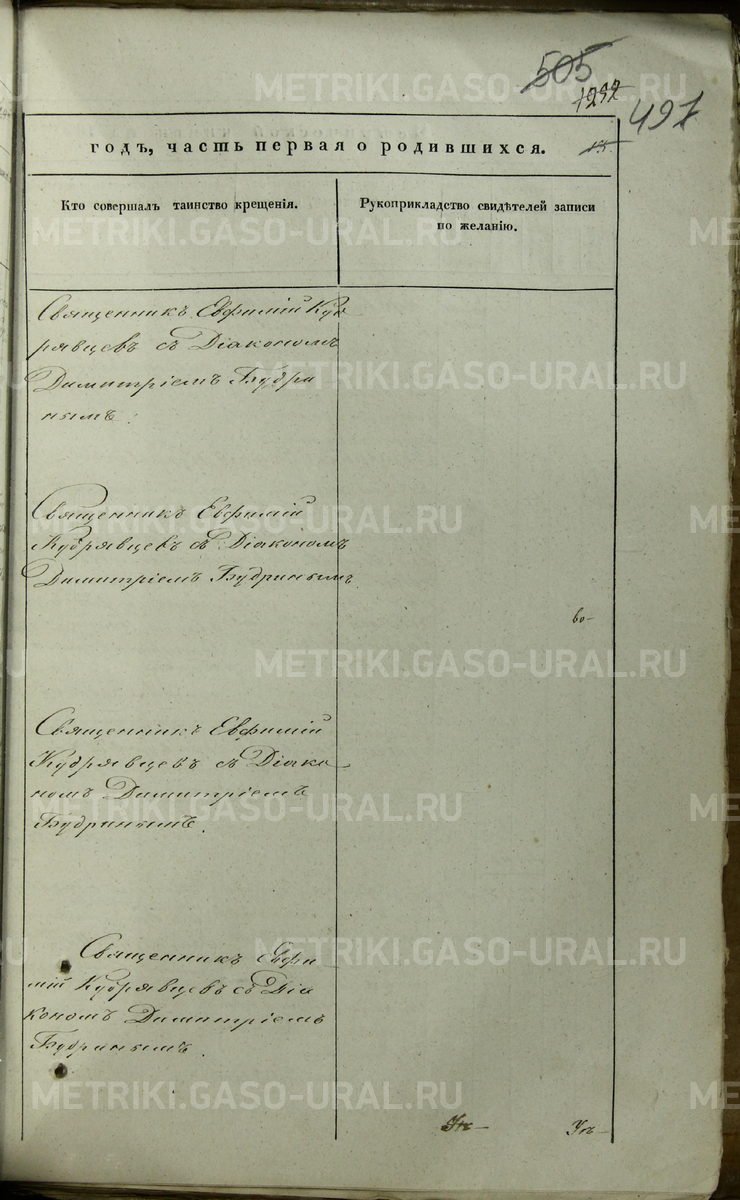 505
1292
497
годъ, часть первая о родившихся.
13
Кто совершалъ таинство крещенія.
Рукоприкладство свидѣтелей записи
по желанію.
Священникъ Евфимій Куд
рявцевъ съ Діакономъ
Димитріемъ Будри
нымъ.
Священникъ Евфимій
Кудрявцевъ съ Діакономъ
Димитріемъ Будринымъ
во-
Священникъ Евфимій
Кудрявцевъ съ Діако
номъ Димитріемъ
Будринымъ.
Священникъ Евфи
мій Кудрявцевъ съ Діа
кономъ Димитріемъ
Будринымъ.
METRIKI.GASO-URAL.RU